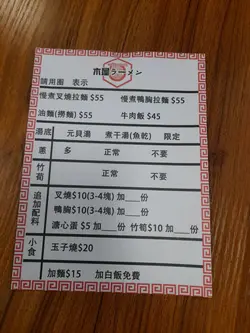 木屋ラーメン
請用圈 表示
慢煮叉燒拉麵 $55 慢煮鴨胸拉麵 $55
油麵(撈麵) $55 牛肉飯 $45
湯底 元貝湯 煮干湯(魚乾) 限定
蔥 多 正常 不要
竹筍 正常 不要
追加配料
叉燒$10(3-4塊) 加___份
鴨胸$10(3-4塊) 加___份
溏心蛋 $5 加___份 竹筍 $10 加___份
小食 玉子燒$20
加麵$15 加白飯免費